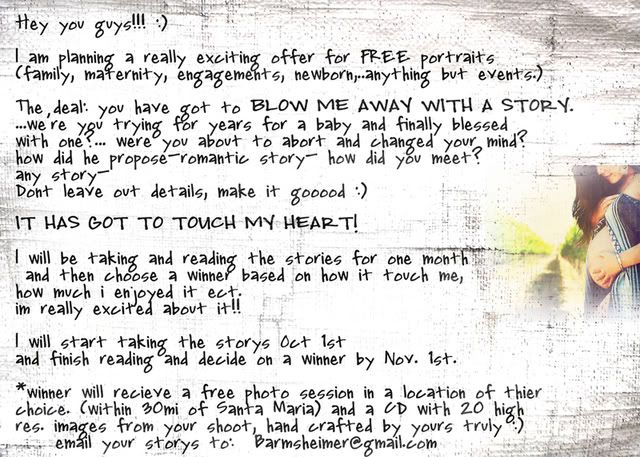 Hey you guys!!! :)
I am planning a really exciting offer for FREE portraits
(family, maternity, engagements, newborn,..anything but events.)
The deal: you have got to BLOW ME AWAY WITH A STORY.
...we're you trying for years for a baby and finally blessed
with one?... were you about to abort and changed your mind?
how did he propose-romantic story- how did you meet?
any story-
Dont leave out details, make it gooood :)
IT HAS GOT TO TOUCH MY HEART!
I will be taking and reading the stories for one month
and then choose a winner based on how it touch me,
how much i enjoyed it ect.
im really excited about it!!
I will start taking the storys Oct 1st
and finish reading and decide on a winner by Nov. 1st.
*winner will recieve a free photo session in a location of thier
choice. (within 30mi of Santa Maria) and a CD with 20 high
res. images from your shoot, hand crafted by yours truly :)
email your storys to: Barmsheimer@gmail.com